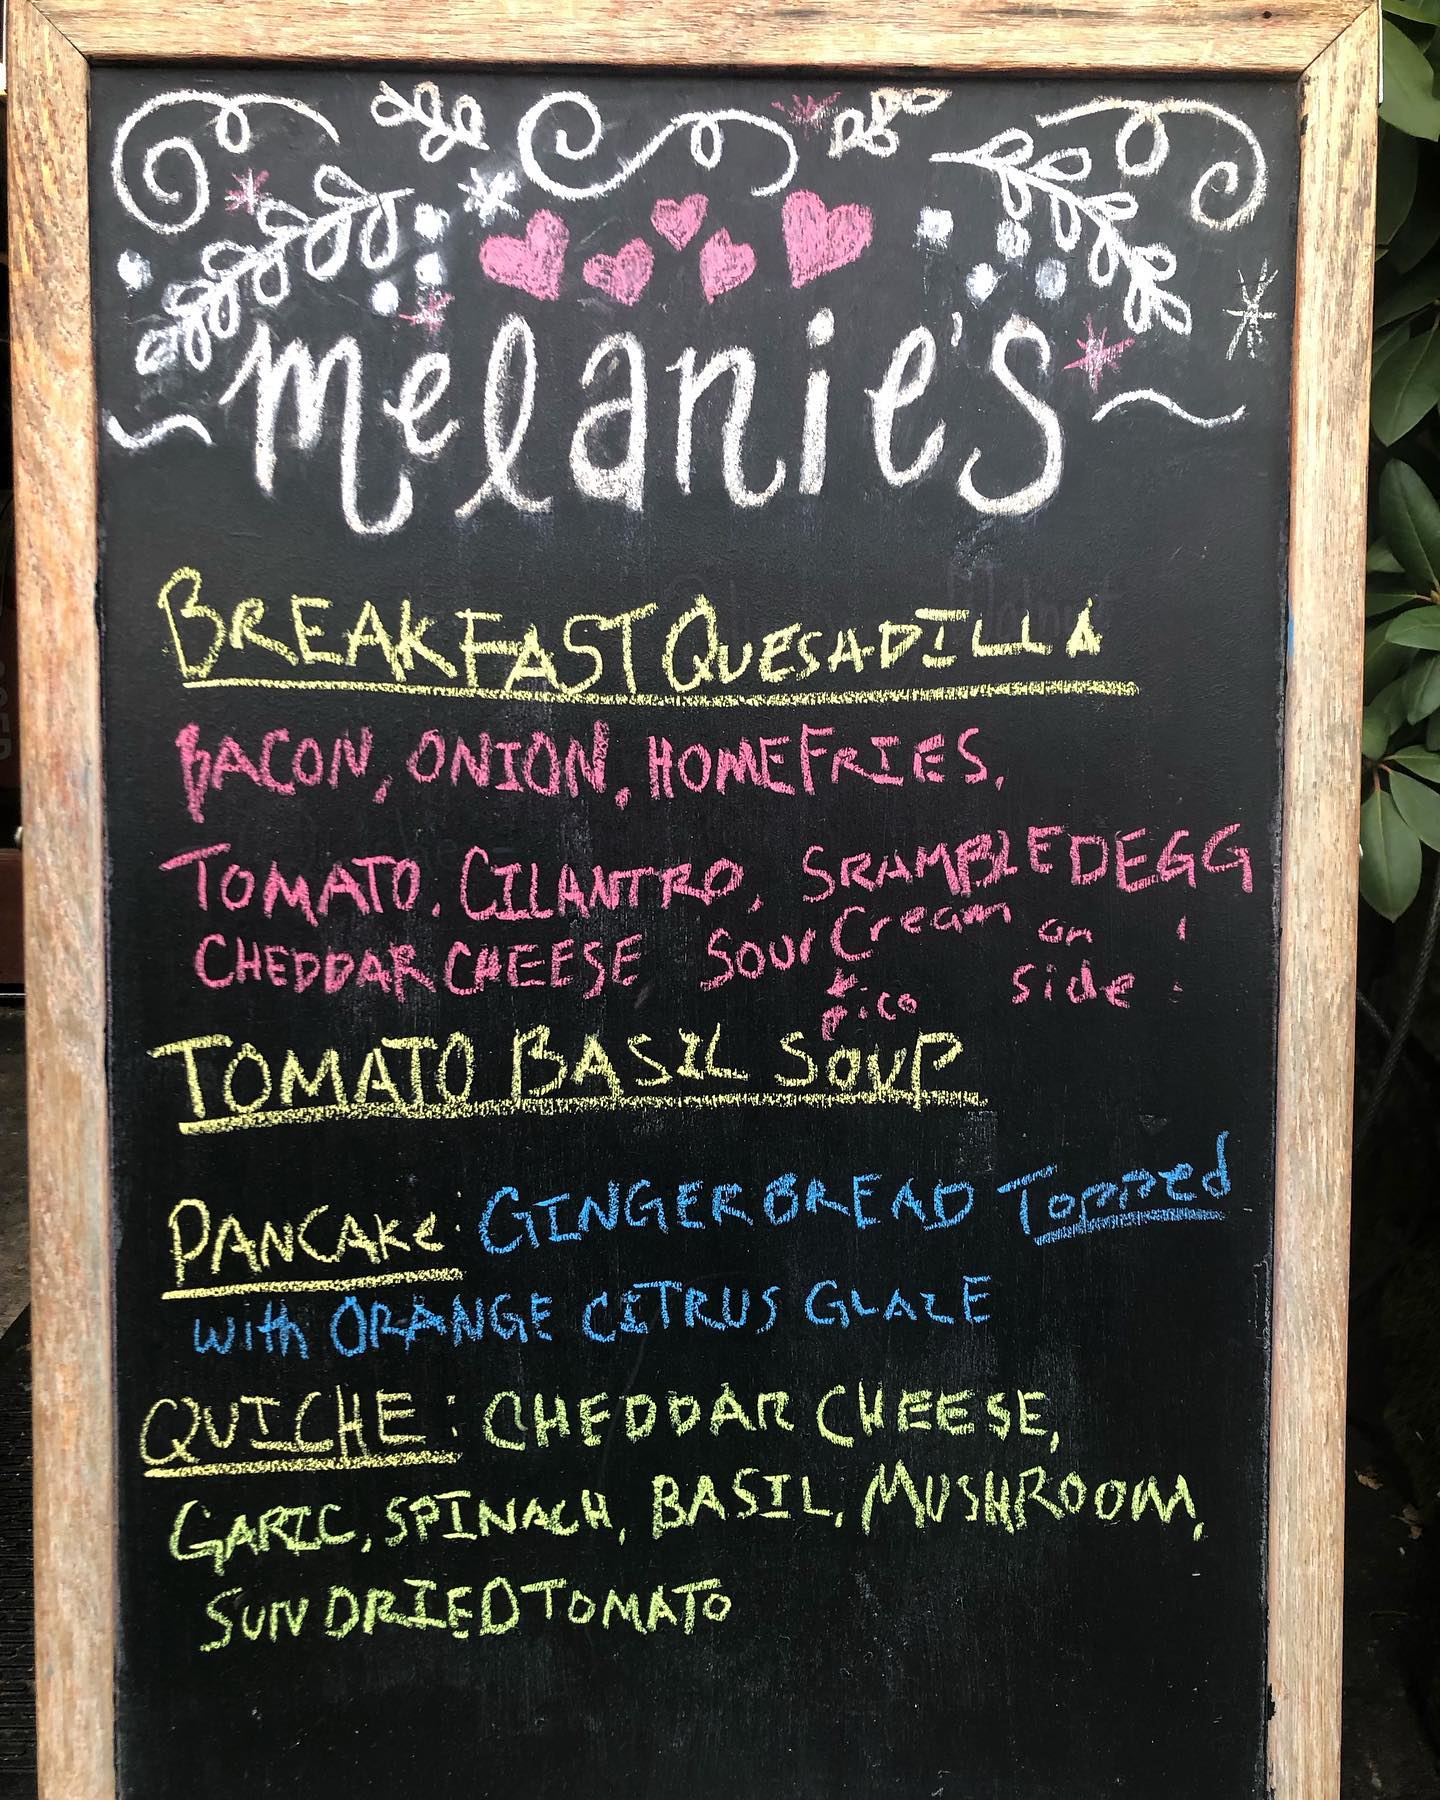 melanie's
BREAKFAST QUESADILLA
BACON, ONION, HOME FRIES,
TOMATO, CILANTRO, SRAMBLED EGG
CHEDDAR CHEESE Sour Cream on
& pico side
TOMATO BASIL SOUP
PANCAKe: GINGERBREAD Topped
with ORANGE CITRUS GLAZE
QUICHE: CHEDDAR CHEESE,
GARIC, SPINACH, BASIL, MUSHROOM,
SUN DRIED TOMATO